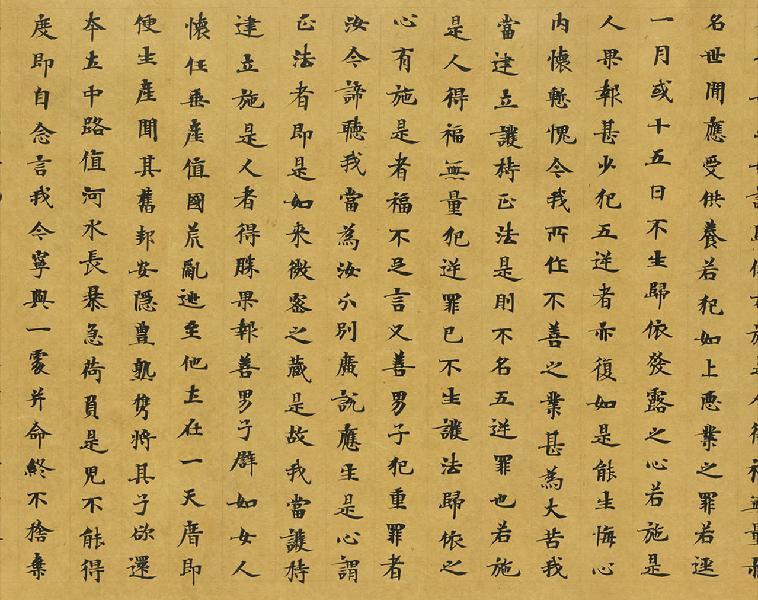 名世間應受供養若犯如上惡業之罪若逕
一月或十五日不生歸依發露之心若施是
人果報甚少犯五逆者亦復如是能生悔心
内懷慙愧今我所作不善之業甚為大苦我
當建立護持正法是則不名五逆罪也若施
是人得福無量犯逆罪已不生護法歸依之
心有施是者福不足言又善男子犯重罪者
汝今諦聽我當為汝分別廣說應生是心謂
正法者即是如來微密之藏是故我當護持
建立施是人者得勝果報善男子譬如女人
懷任垂產值國荒亂逃至他土在一天庿即
便生產聞其舊邦安隱豐熟携將其子欲還
本土中路值河水長暴急荷負是兒不能得
度即自念言我今寧與一處并命終不捨棄